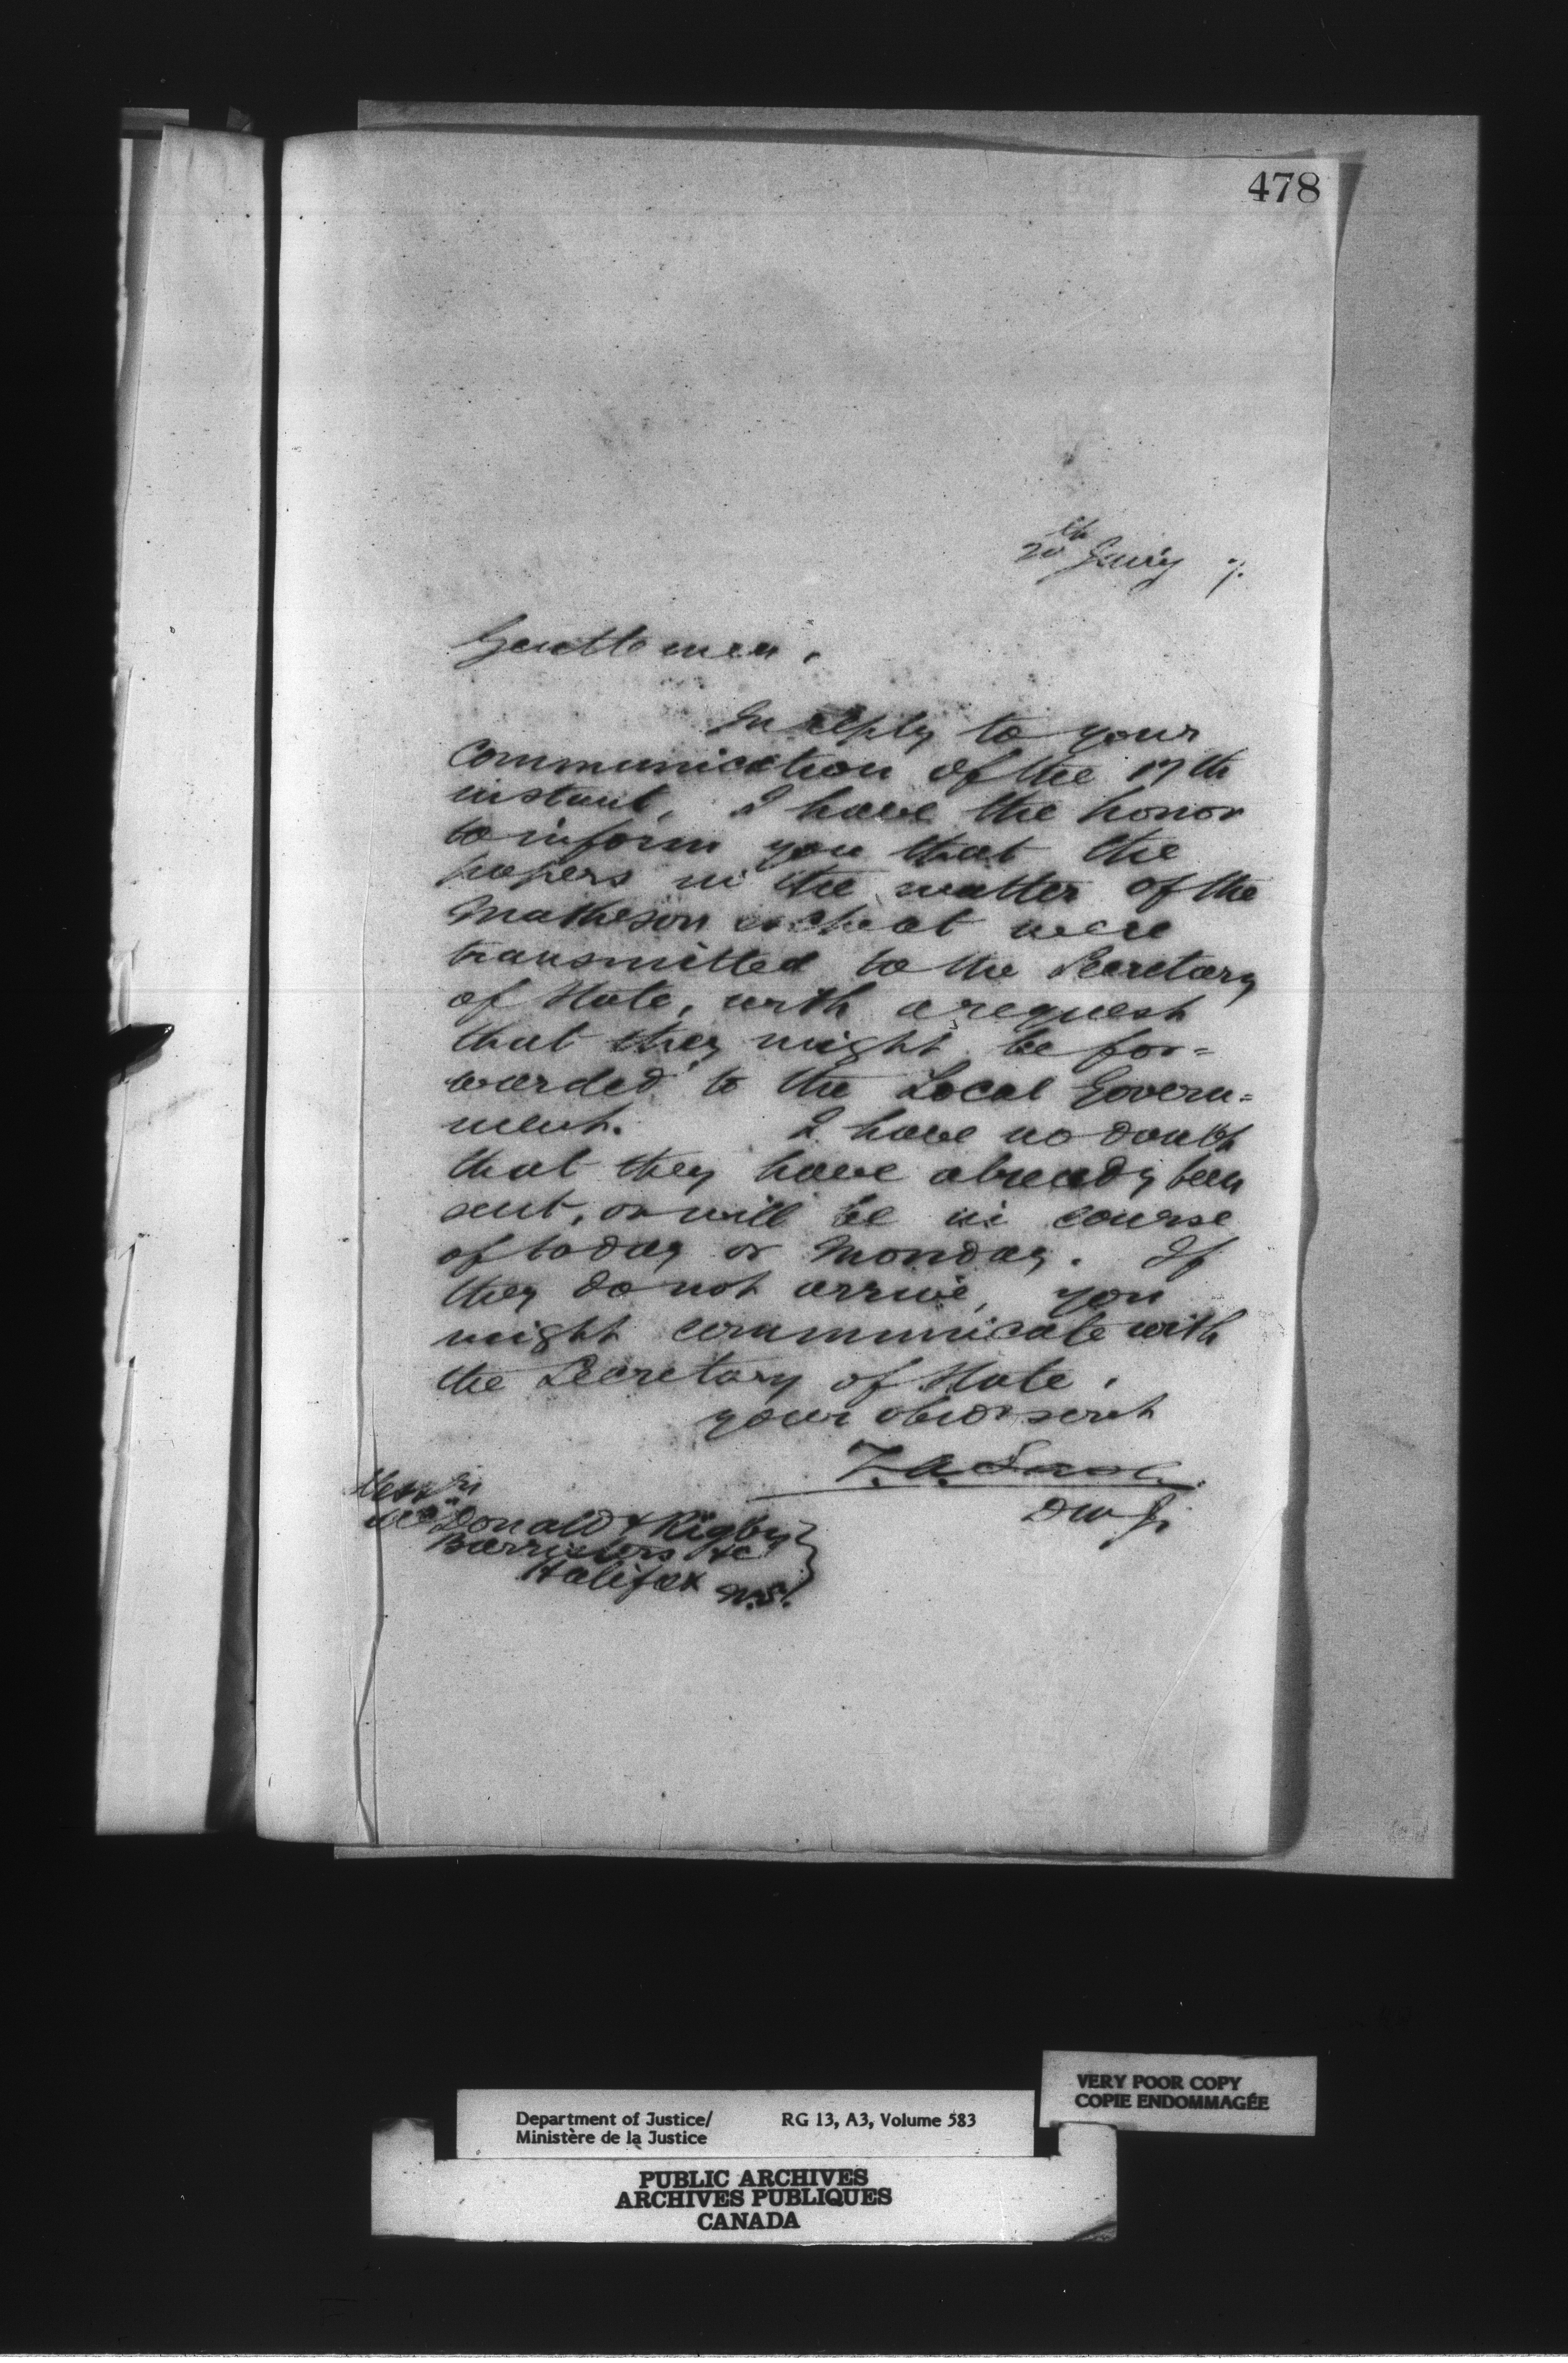 478
20th Jany 7.
Gentlemen.
In reply to your
communication of the 17th
instant, I have the honor
to inform you that the
papers in the matter of the
Matheson escheat were
transmitted to the Secretary
of State, with a request
that they might be for=
warded to the Local Govern=
ment. I have no doubt
that they have already been
sent, or will be in course
of today or Monday. If
they do not arrive, you
might communicate with
the Secretary of State.
your obedt servt
Z. A. Lash
DMJ
Messrs
McDonald & Rigby
Barristers &c
Halifax N.S.
VERY POOR COPY
COPIE ENDOMMAGÉE
Department of Justice/ RG 13, A3, Volume 583
Ministère de la Justice
PUBLIC ARCHIVES
ARCHIVES PUBLIQUES
CANADA